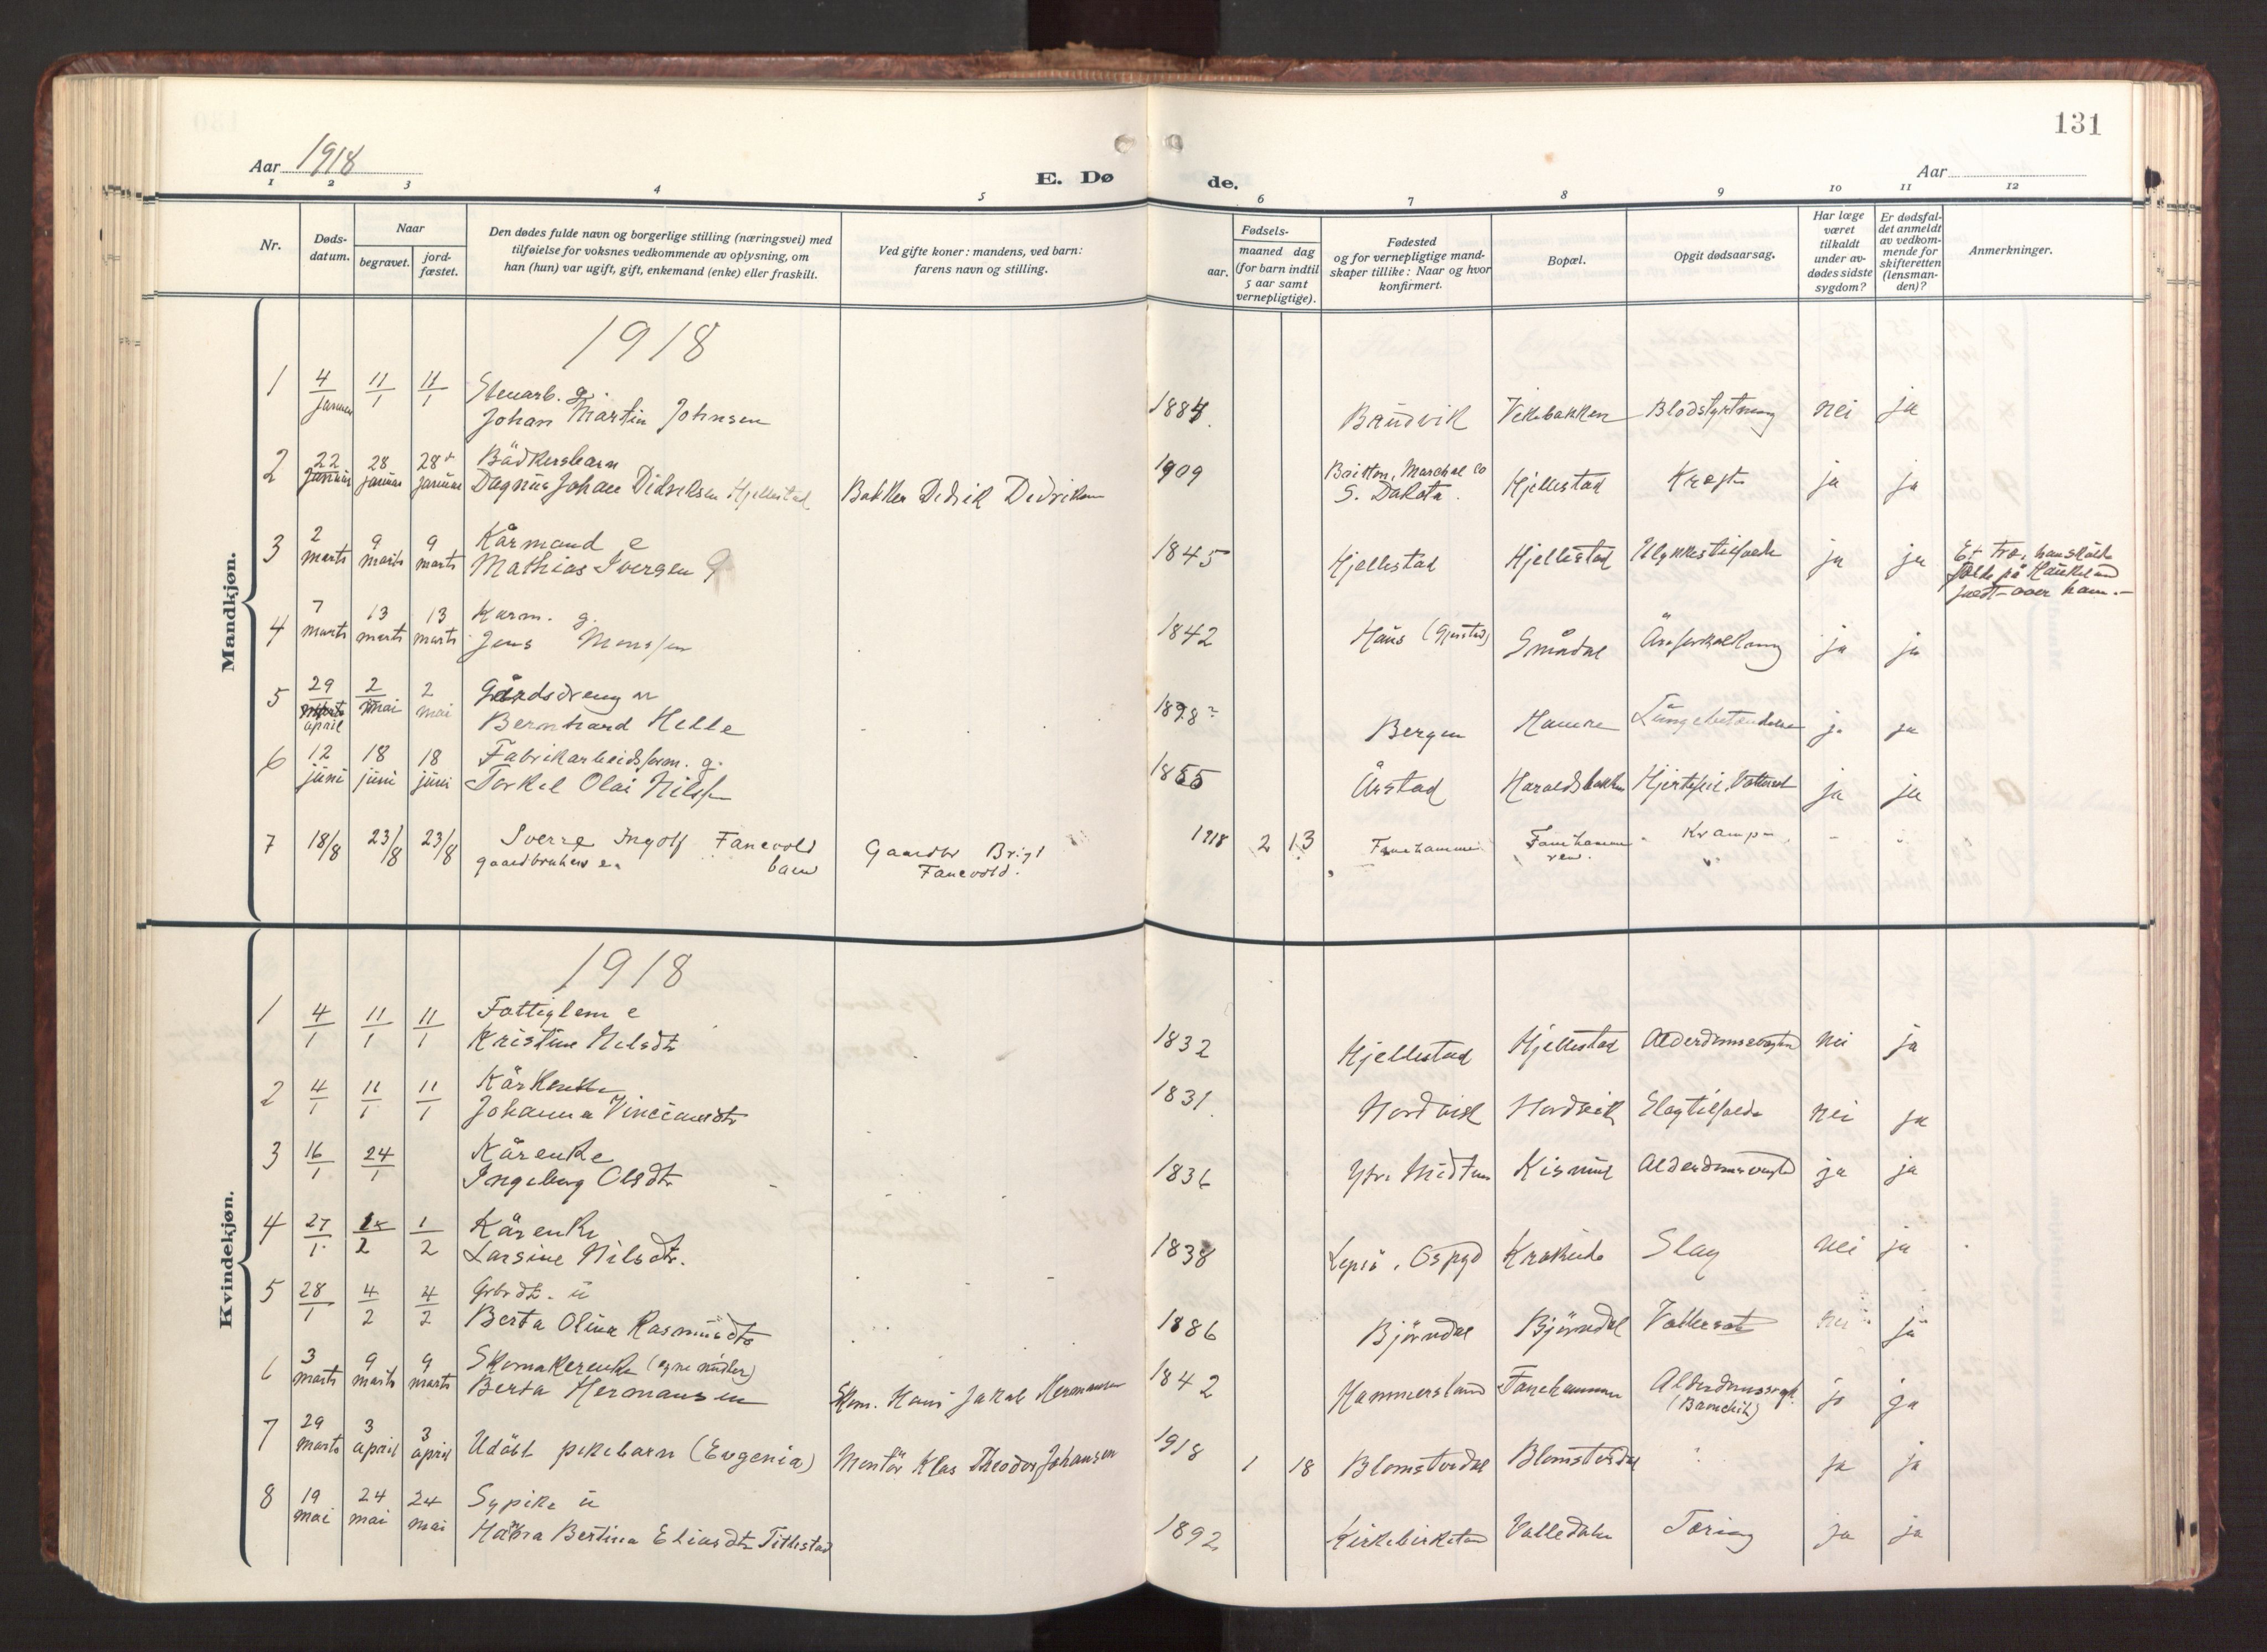 131
Aar 1918
E. Dø
de.
Aar
1 2 3 4 5 6 7 8 9 10 11 12
Nr.
Døds-
datum.
Naar
begravet.
jord-
fæstet.
Den dødes fulde navn og borgerlige stilling (næringsvei) med
tilføielse for voksnes vedkommende av oplysning, om
han (hun) var ugift, gift, enkemand (enke) eller fraskilt.
Ved gifte koner: mandens, ved barn:
farens navn og stilling.
Fødsels-
aar.
maaned dag
(for barn indtil
5 aar samt
vernepligtige).
Fødested
og for vernepligtige mand-
skaper tillike: Naar og hvor
konfirmert.
Bopæl.
Opgit dødsaarsag.
Har læge
været
tilkaldt
under av-
dødes sidste
sygdom?
Er dødsfal-
det anmeldt
av vedkom-
mende for
skifteretten
(lensman-
den)?
Anmerkninger.
Mandkjøn.
1918
1 4/januar 11/1 11/1 Stenarb. g.
Johan Martin Johnsen 1884 Brudvik Vikebakken Blodstyrtning nei ja
2 22 januar 28 januar 28 januar Bådkersbarn
Dagnus Johan Didriksen Hjellestad Bøkker Didrik Didriksen 1909 Britton, Marchal Co
S. Dakota. Hjellestad Kræft ja ja
3 2 marts 9 marts 9 marts Kårmand e
Mathias Iversen 1845 Hjellestad Hjellestad Ulykkestilfælde ja ja Et træ, han skulde
fælde på Haukeland
faldt over ham.-
4 7 marts 13 marts 13 marts Karm. g.
Jens Monssen 1842 Haus (Gjerstad) Smådal Åreforkalkning ja ja
5 29 april 2 mai 2 mai Gårdsdreng u
Bernhard Helle 1898? Bergen Hamre Lungebetændelse ja ja
6 12 juni 18 juni 18 juni Fabrikarbeidsform. g.
Torkel Olai Nilssen 1855 Årstad Haraldsbakken Hjertefeil, Vattersot ja ja
7 18/8 23/8 23/8 Sverre Ingolf Fanevold
gaardbrukers barn Gaardbr Brigt
Fanevold. 1918 2 13 Fanehammeren Fanehamme
ren. Krampe
Kvindekjøn.
1918
1 4/1 11/1 11/1 Fattiglem e
Kristine Nilsdtr 1832 Hjellestad Hjellestad Alderdomssvaghed nei ja
2 4/1 11/1 11/1 Kårkenke
Johanna Vincianusdtr 1831 Nordvik Nordvik Slagtilfælde nei ja
3 16/1 24/1 Kårenke
Ingeborg Olsdtr 1836 Ytre Midtun Kismul Alderdomssvaghed ja ja
4 27/1 1/2 1/2 Kårenke
Larsine Nilsdtr. 1838 Lepsö, Os pgd Krokeide Slag nei ja
5 28/1 4/2 4/2 Gbrdt. u
Berta Olina Rasmusdtr 1886 Bjørndal Bjørndal Vattersot nei ja
6 3 marts 9 marts 9 marts Skomakerenke (egne midler)
Berta Hermansen Skom. Hans Jakob Hermansen 1842 Hammersland Fanehammeren Alderdomssvagh.
(Bronchit) ja ja
7 29 marts 3 april 3 april Udøbt pikebarn (Eugenia) Montör Klas Theodor Johansen 1918 1 18 Blomsterdal Blomsterdal ja ja
8 19 mai 24 mai 24 mai Sypike u
Hanna Bertina Eliasdtr Titlestad 1892 Kirkebirkeland Valledalen Tæring ja ja